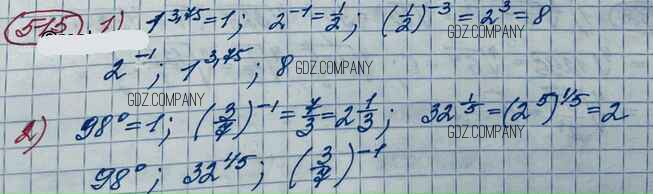 515. 1) 1^3,75 = 1; 2^-1 = 1/2; (1/2)^-3 = 2^3 = 8
GDZ.COMPANY
2^-1; 1^3,75; 8 GDZ.COMPANY
GDZ.COMPANY GDZ.COMPANY
2) 98^0 = 1; (3/7)^-1 = 7/3 = 2 1/3; 32^1/5 = (2^5)^1/5 = 2
GDZ.COMPANY
98^0; 32^1/5; (3/7)^-1